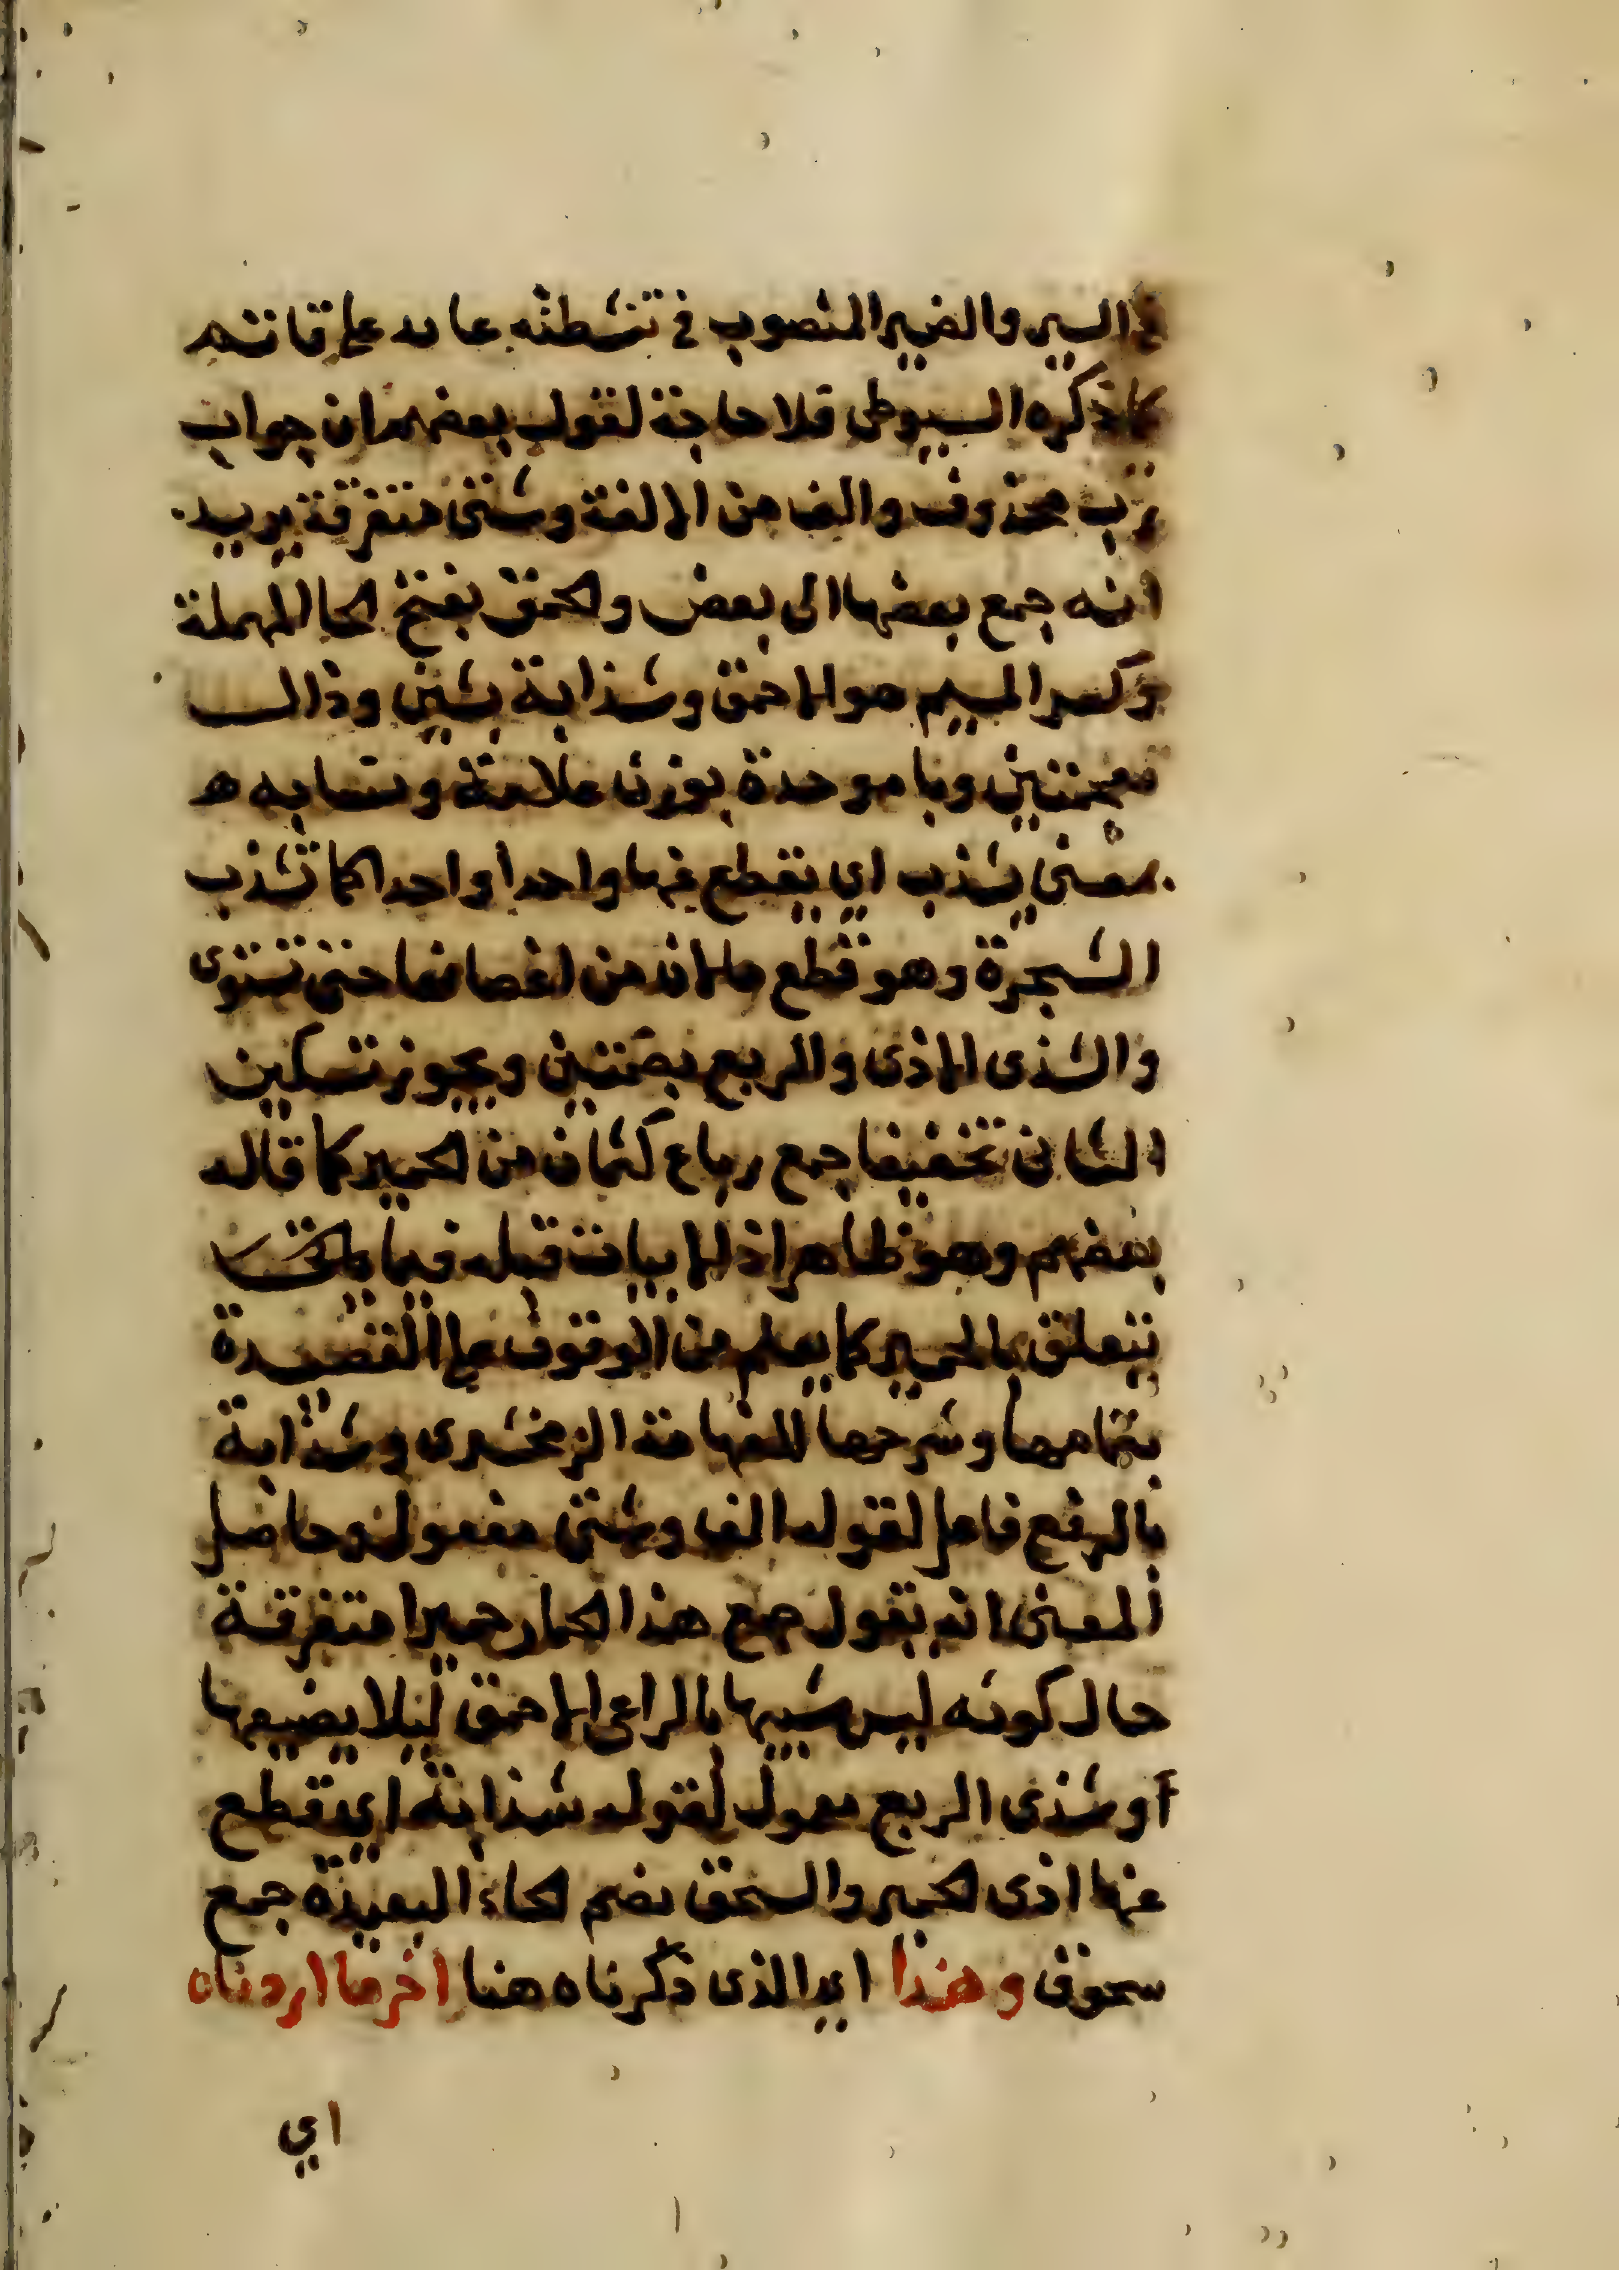 في السير والضمير المنصوب في تنشطته عايد على قاتم
كما ذكره السيوطي فلا حاجة لقول بعضهم ان جواب
رب محذوف والف من الالفة وشتى متفرقة يريد
انه جمع بعضها الى بعض والحمق بفتح الحا المهملة
وكسر الميم هو الاحمق وشذابة بشين وذال
معجمتين وبا موحدة بوزن علامة ونسابه ه
بمعنى يشذب اي يقطع عنها واحدا واحدا كما تشذب
الشجرة وهو قطع مالان من اغصانها حتى تستوى
والشذى الاذى والربع بضمتين ويجوز تسكين
الثانى تخفيفا جمع رباع كثمان من الحمير كما قاله
بعضهم وهو ظاهر اذ الابيات قبله فيما
يتعلق بالحمير كما يعلم من الوقوف على القصيدة
بتمامها وشرحها للعلامة الزمخشرى وشذابة
بالرفع فاعل لقوله الف وشتى مفعول وحاصل
المعنى انه يقول جمع هذا الحمار حميرا متفرقة
حال كونه ليس شبيها بالراعى الاحمق ليلا يضيعها
او شذى الربع معمول لقوله شذابة اي يقطع
عنها اذى الحمير والسحق بضم الحاء البعيدة جمع
سحوق وهذا اي الذى ذكرناه هنا اخر ما اردناه
اي